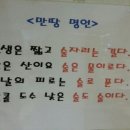 <만땅 명언>
생은 짧고 술자리는 길다.
은 산이요 술은 물이로다.
날의 피로는 술로 푼다.
길 도수 낮은 술도 술이다.